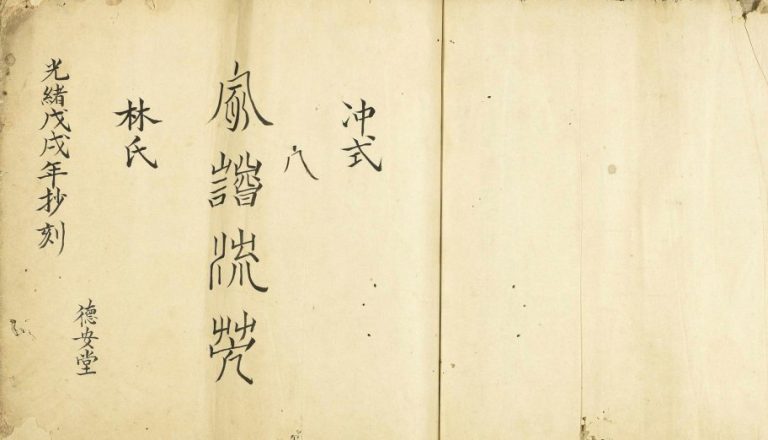 冲式
八
家譜流芳
林氏
德安堂
光緒戊戌年抄刻